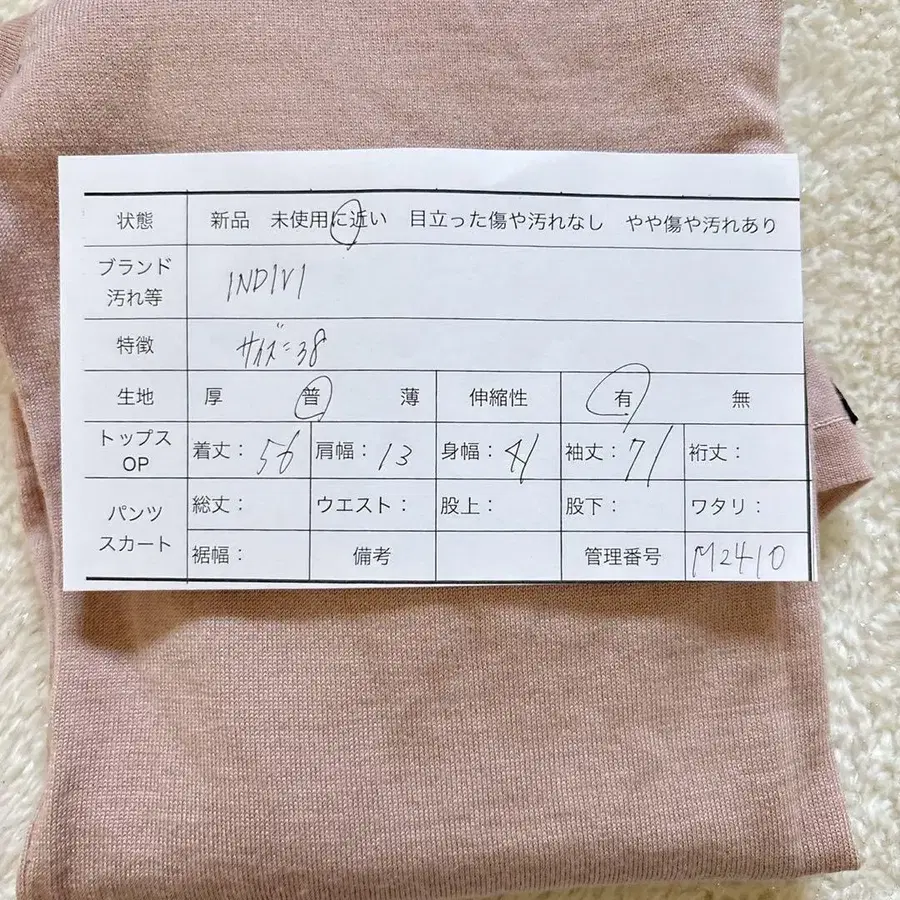 状態 新品 未使用に近い 目立った傷や汚れなし やや傷や汚れあり
ブランド
汚れ等 INDIVI
特徴 サイズ:38
生地 厚 普 薄 伸縮性 有 無
トップス
OP 着丈:56 肩幅:13 身幅:41 袖丈:71 裄丈:
パンツ
スカート 総丈: ウエスト: 股上: 股下: ワタリ:
裾幅: 備考 管理番号 M2410